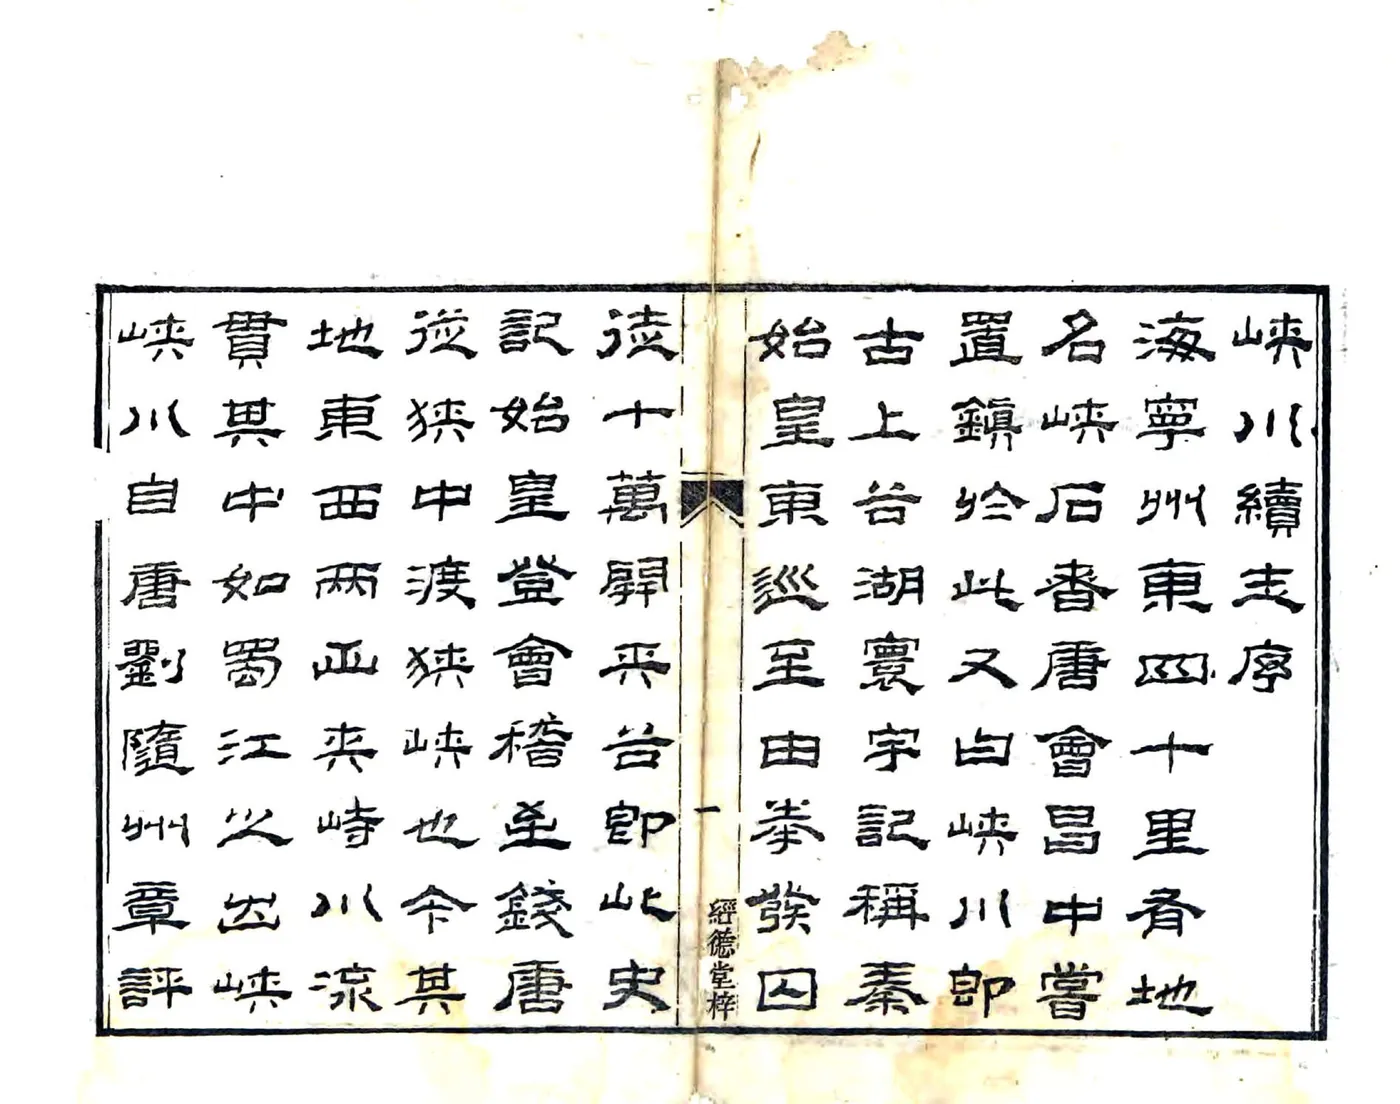 峽川續志序
海寧州東四十里有地
名峽石者唐會昌中嘗
置鎮於此又曰峽川即
古上谷湖寰宇記稱秦
始皇東巡至由拳發囚
徒十萬開平谷即此史
記始皇登會稽至錢唐
從狹中渡狹峽也今其
地東西兩山夾峙川流
貫其中如蜀江之出峽
峽川自唐劉隨州章評
一
經德堂梓